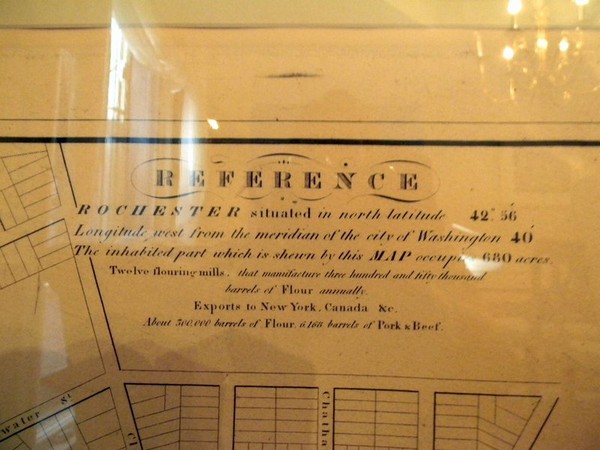 REFERENCE
ROCHESTER situated in north latitude 42° 56′
Longitude west from the meridian of the city of Washington 40′
The inhabited part which is shewn by this MAP occupies 680 acres.
Twelve flouring mills, that manufacture three hundred and fifty thousand
barrels of Flour annually.
Exports to New York, Canada &c.
About 300,000 barrels of Flour, 6168 barrels of Pork & Beef.
water St
Chatha